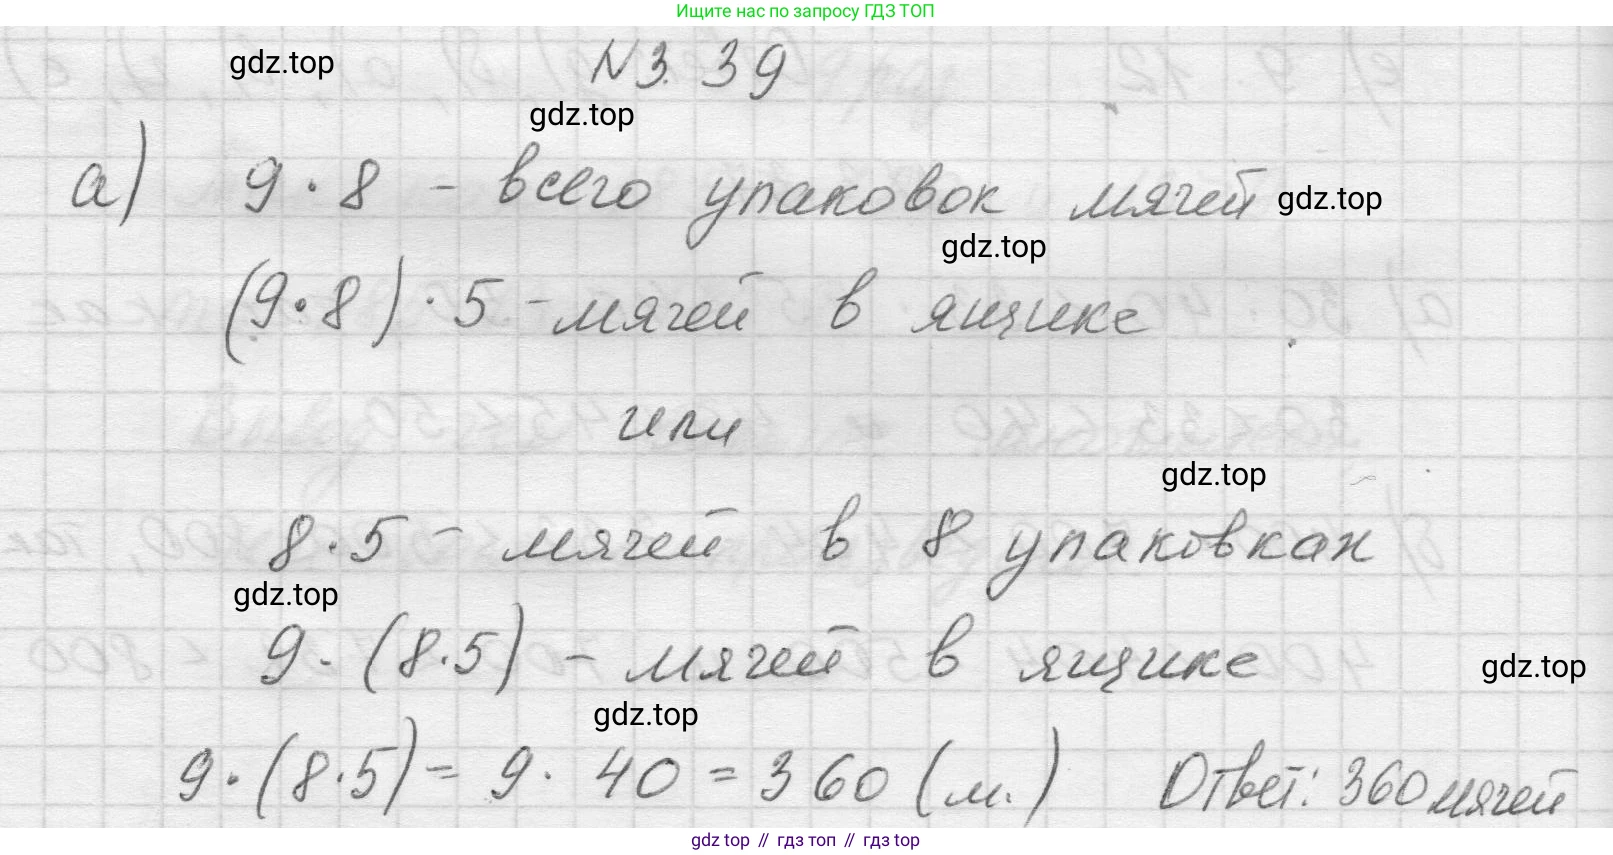 Ищите нас по запросу ГДЗ ТОП
gdz.top
N 3. 39
gdz.top
а) 9 · 8 - всего упаковок мячей
gdz.top
gdz.top
(9 · 8) · 5 - мячей в ящике
или
gdz.top
8 · 5 - мячей в 8 упаковках
gdz.top
9 · (8 · 5) - мячей в ящике
gdz.top
gdz.top
9 · (8 · 5) = 9 · 40 = 360 (м.) Ответ: 360 мячей
gdz top // гдз топ // гдз top